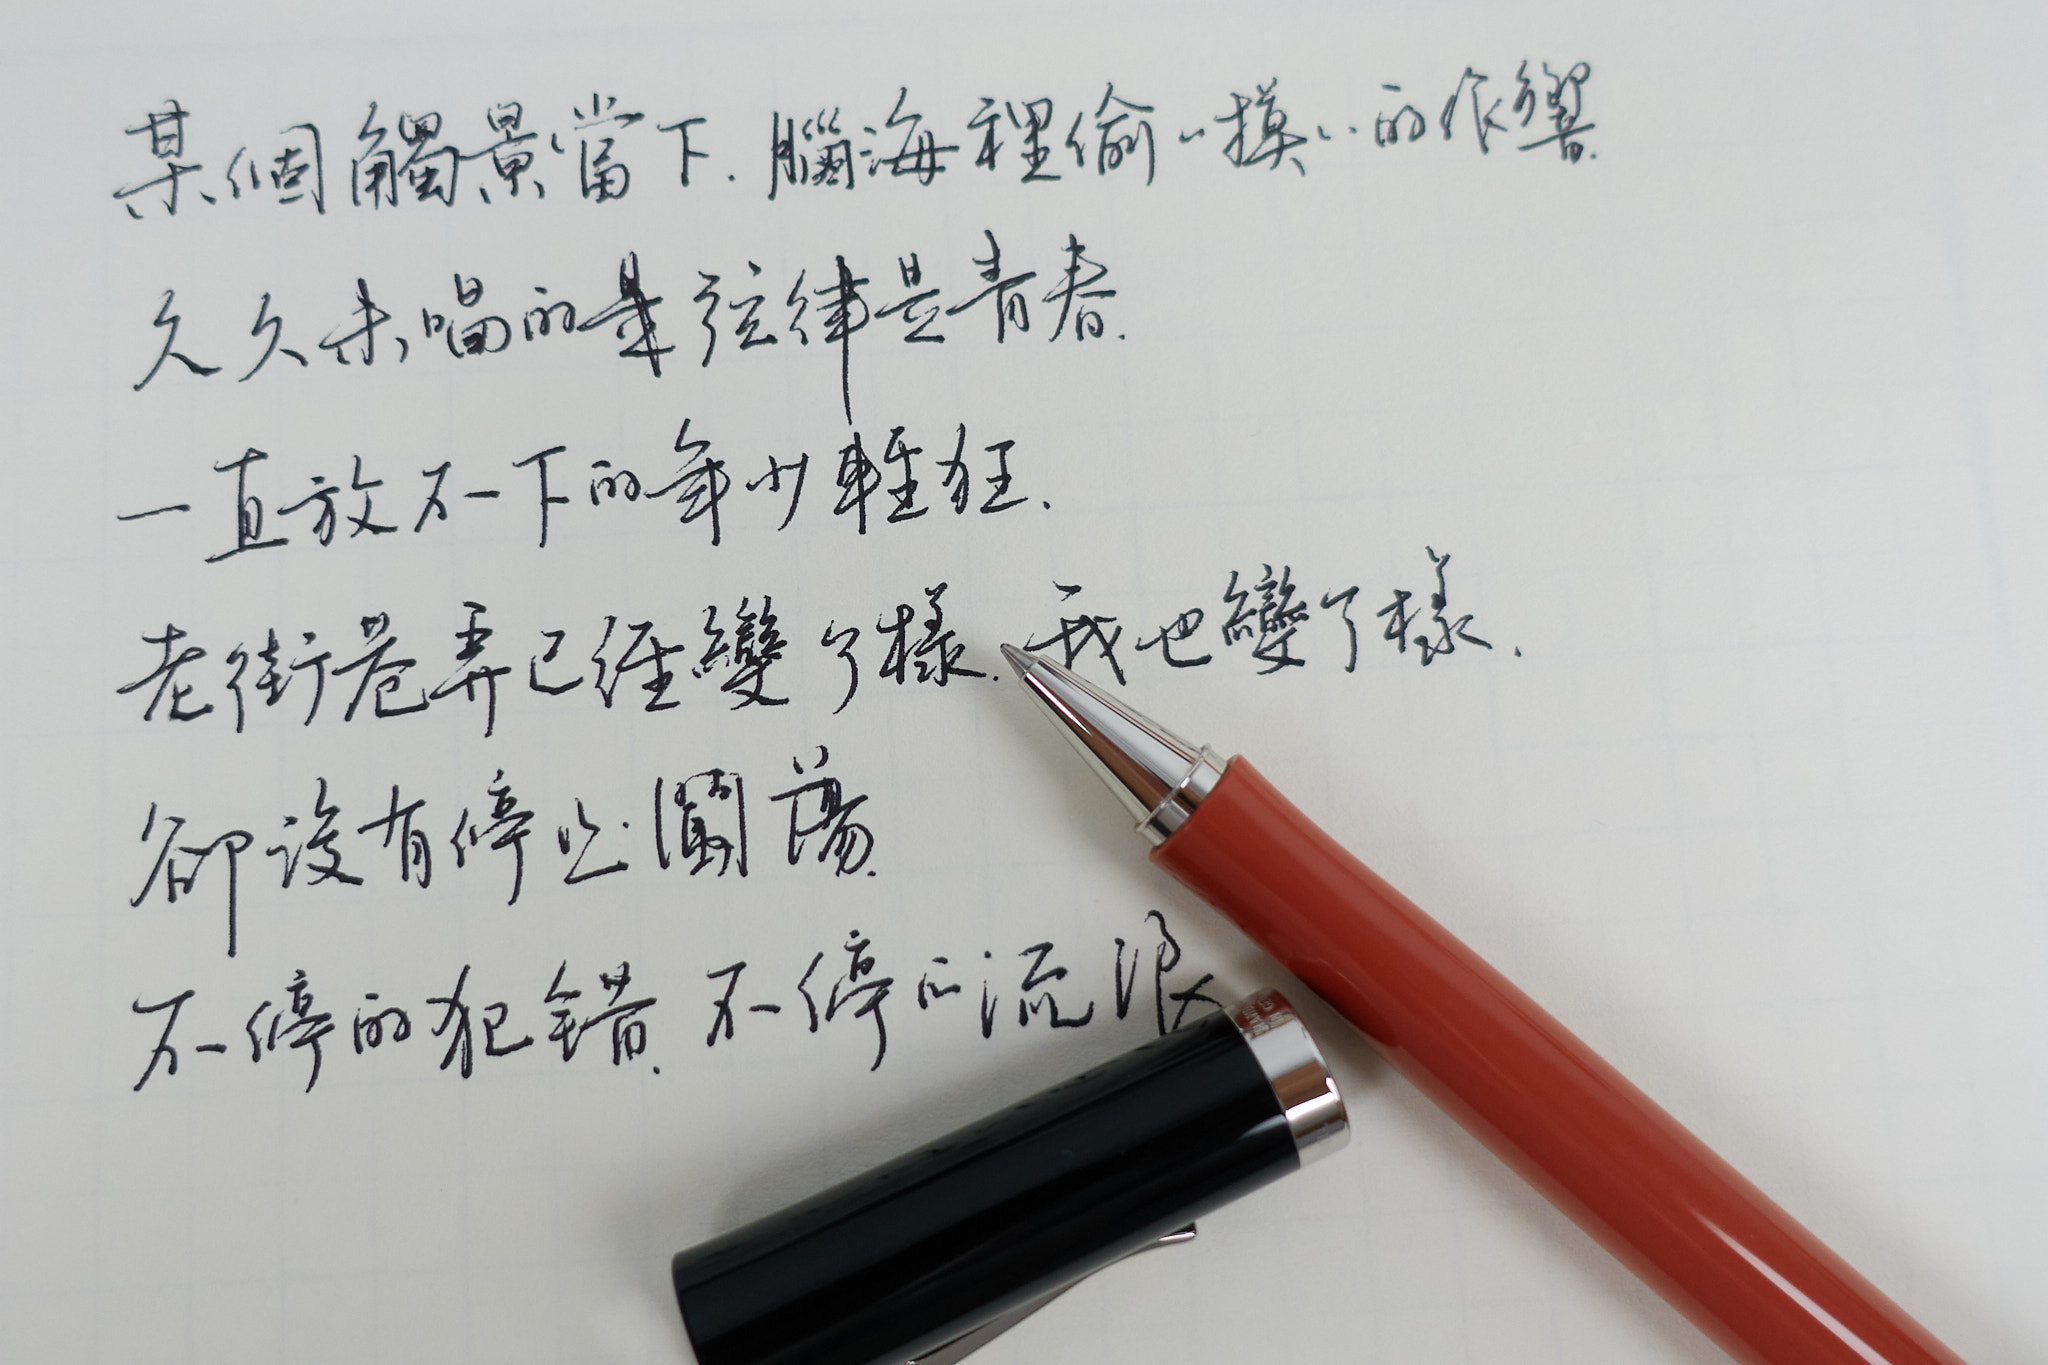 某個觸景當下.腦海裡偷偷摸摸的作響.
久久未唱的某弦律是青春.
一直放不下的年少輕狂.
老街巷弄已經變了樣.我也變了樣.
卻沒有停止.闖蕩.
不停的犯錯.不停的流浪